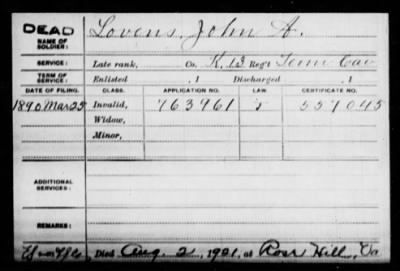 DEAD
NAME OF SOLDIER: Lovens, John A.
SERVICE: Late rank, Co. K, 13 Reg't Tenn Cav
TERM OF SERVICE: Enlisted , 1 Discharged , 1
DATE OF FILING. CLASS. APPLICATION NO. LAW. CERTIFICATE NO.
1890 Mar 25 Invalid, 763961 557045
Widow,
Minor,
ADDITIONAL SERVICES:
REMARKS:
Died Aug. 2, 1901, at Rose Hill, Va